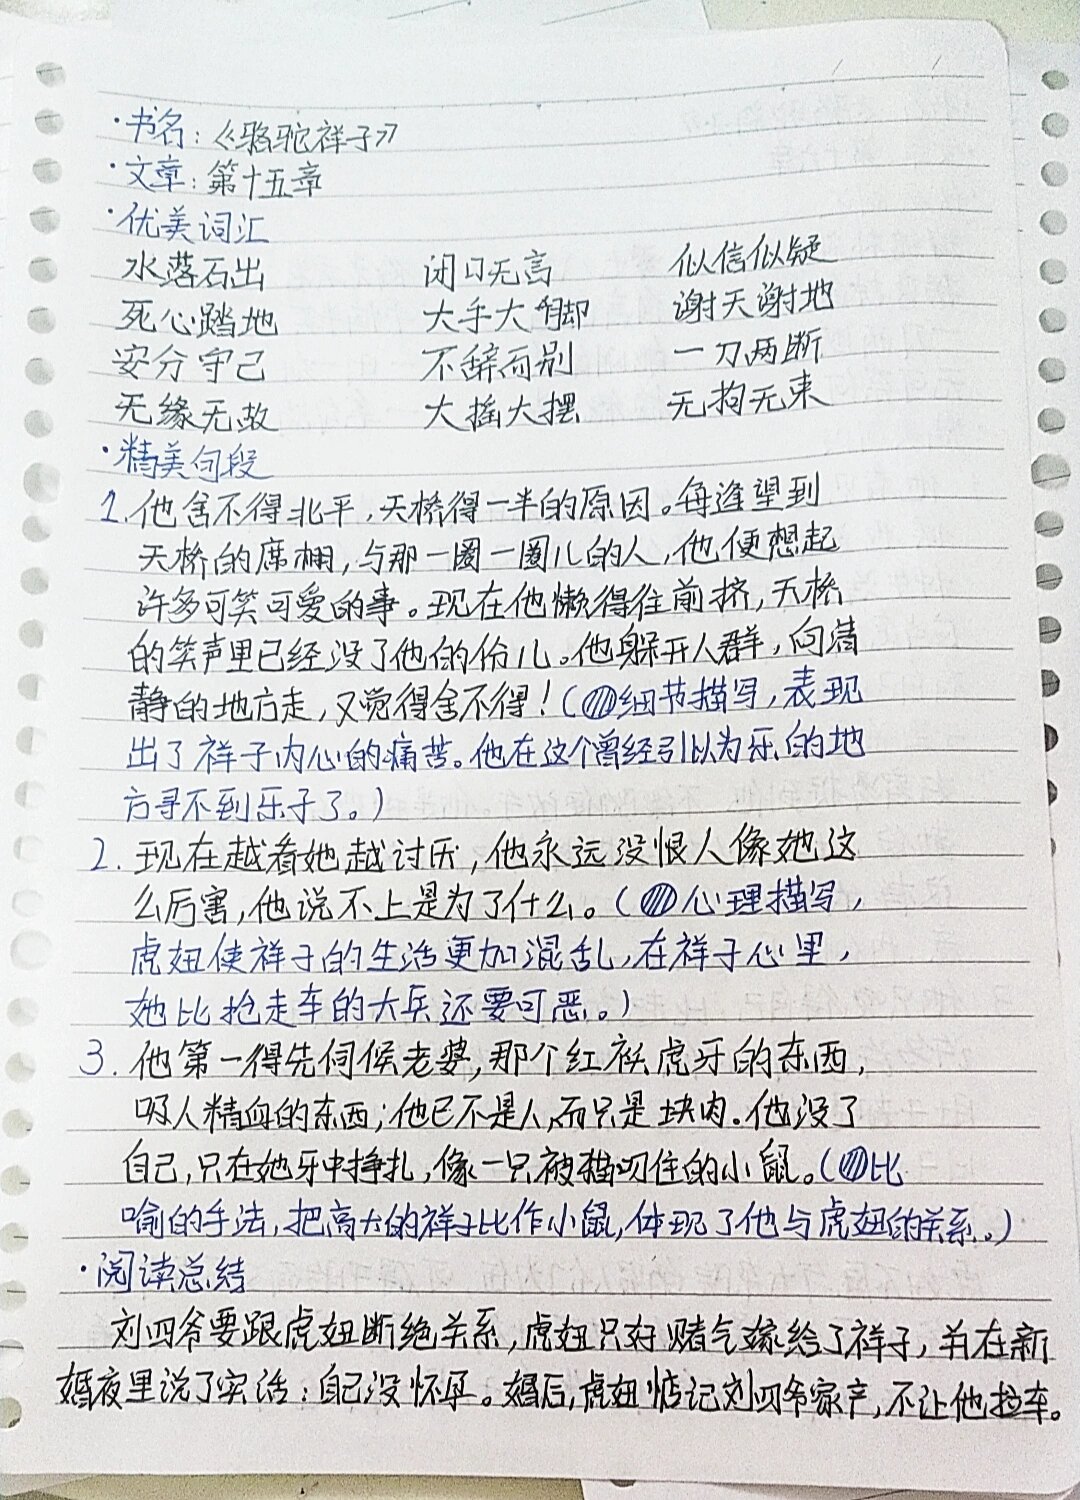 ·书名:《骆驼祥子》
·文章:第十五章
·优美词汇
水落石出 闭口无言 似信似疑
死心踏地 大手大脚 谢天谢地
安分守己 不辞而别 一刀两断
无缘无故 大摇大摆 无拘无束
·精美句段
1.他舍不得北平,天桥得一半的原因。每逢望到
天桥的席棚,与那一圈一圈儿的人,他便想起
许多可笑可爱的事。现在他懒得往前挤,天桥
的笑声里已经没了他的份儿。他躲开人群,向清
静的地方走,又觉得舍不得!(细节描写,表现
出了祥子内心的痛苦。他在这个曾经引以为乐的地
方寻不到乐子了。)
2.现在越看她越讨厌,他永远没恨人像她这
么厉害,他说不上是为了什么。(心理描写,
虎妞使祥子的生活更加混乱,在祥子心里,
她比抢走车的大兵还要可恶。)
3.他第一得先伺候老婆,那个红袄虎牙的东西,
吸人精血的东西;他已不是人,而只是块肉。他没了
自己,只在她牙中挣扎,像一只被猫叨住的小鼠。(比
喻的手法,把高大的祥子比作小鼠,体现了他与虎妞的关系。)
·阅读总结
刘四爷要跟虎妞断绝关系,虎妞只好赌气嫁给了祥子,并在新
婚夜里说了实话:自己没怀孕。婚后,虎妞惦记刘四爷家产,不让他拉车。